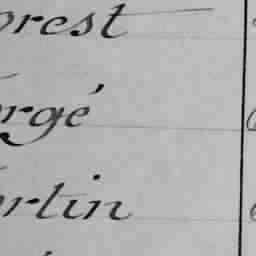 orest
rgé
rtin